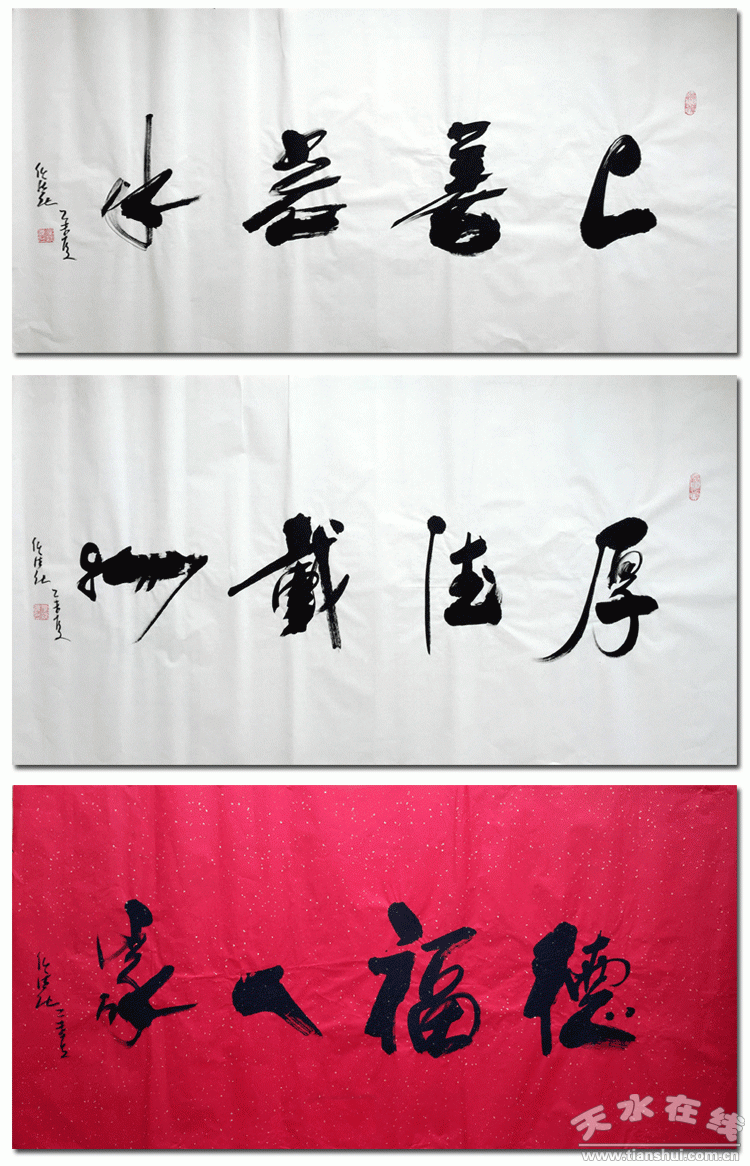 上善若水
乙未夏
厚德載物
乙未夏
德福人家
乙未夏
天水在线
www.tianshui.com.cn